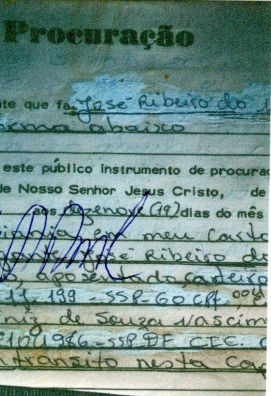 Procuração
te que faz José Ribeiro do
orma abaixo
este público instrumento de procura
de Nosso Senhor Jesus Cristo, de
aos dezenove (19) dias do mês
em meu Carto
José Ribeiro do
aposentado carteiro
11.199-SSP-GO
niz de Souza Nascim
101986-SSP.DF CIC.
transito nesta Cap